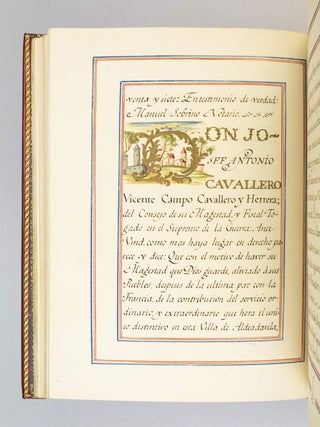 venta, y siete: En testimonio de verdad:
Manuel Sobrino Notario.
DON JO-
SEF ANTONIO
CAVALLERO
Vicente Campo Cavallero y Herrera;
del Consejo de su Magestad, y Fiscal To-
gado en el Supremo de la Guerra: Ante
Vmd. como mas haya lugar en derecho pa-
rece y dice: Que con el motivo de haver su
Magestad que Dios guarde, aliviado á sus
Pueblos, despues de la ultima paz con la
Francia, de la contribucion del servicio or-
dinario, y extraordinario que hera el uni-
co distintivo en esta Villa de Aldeadavila,